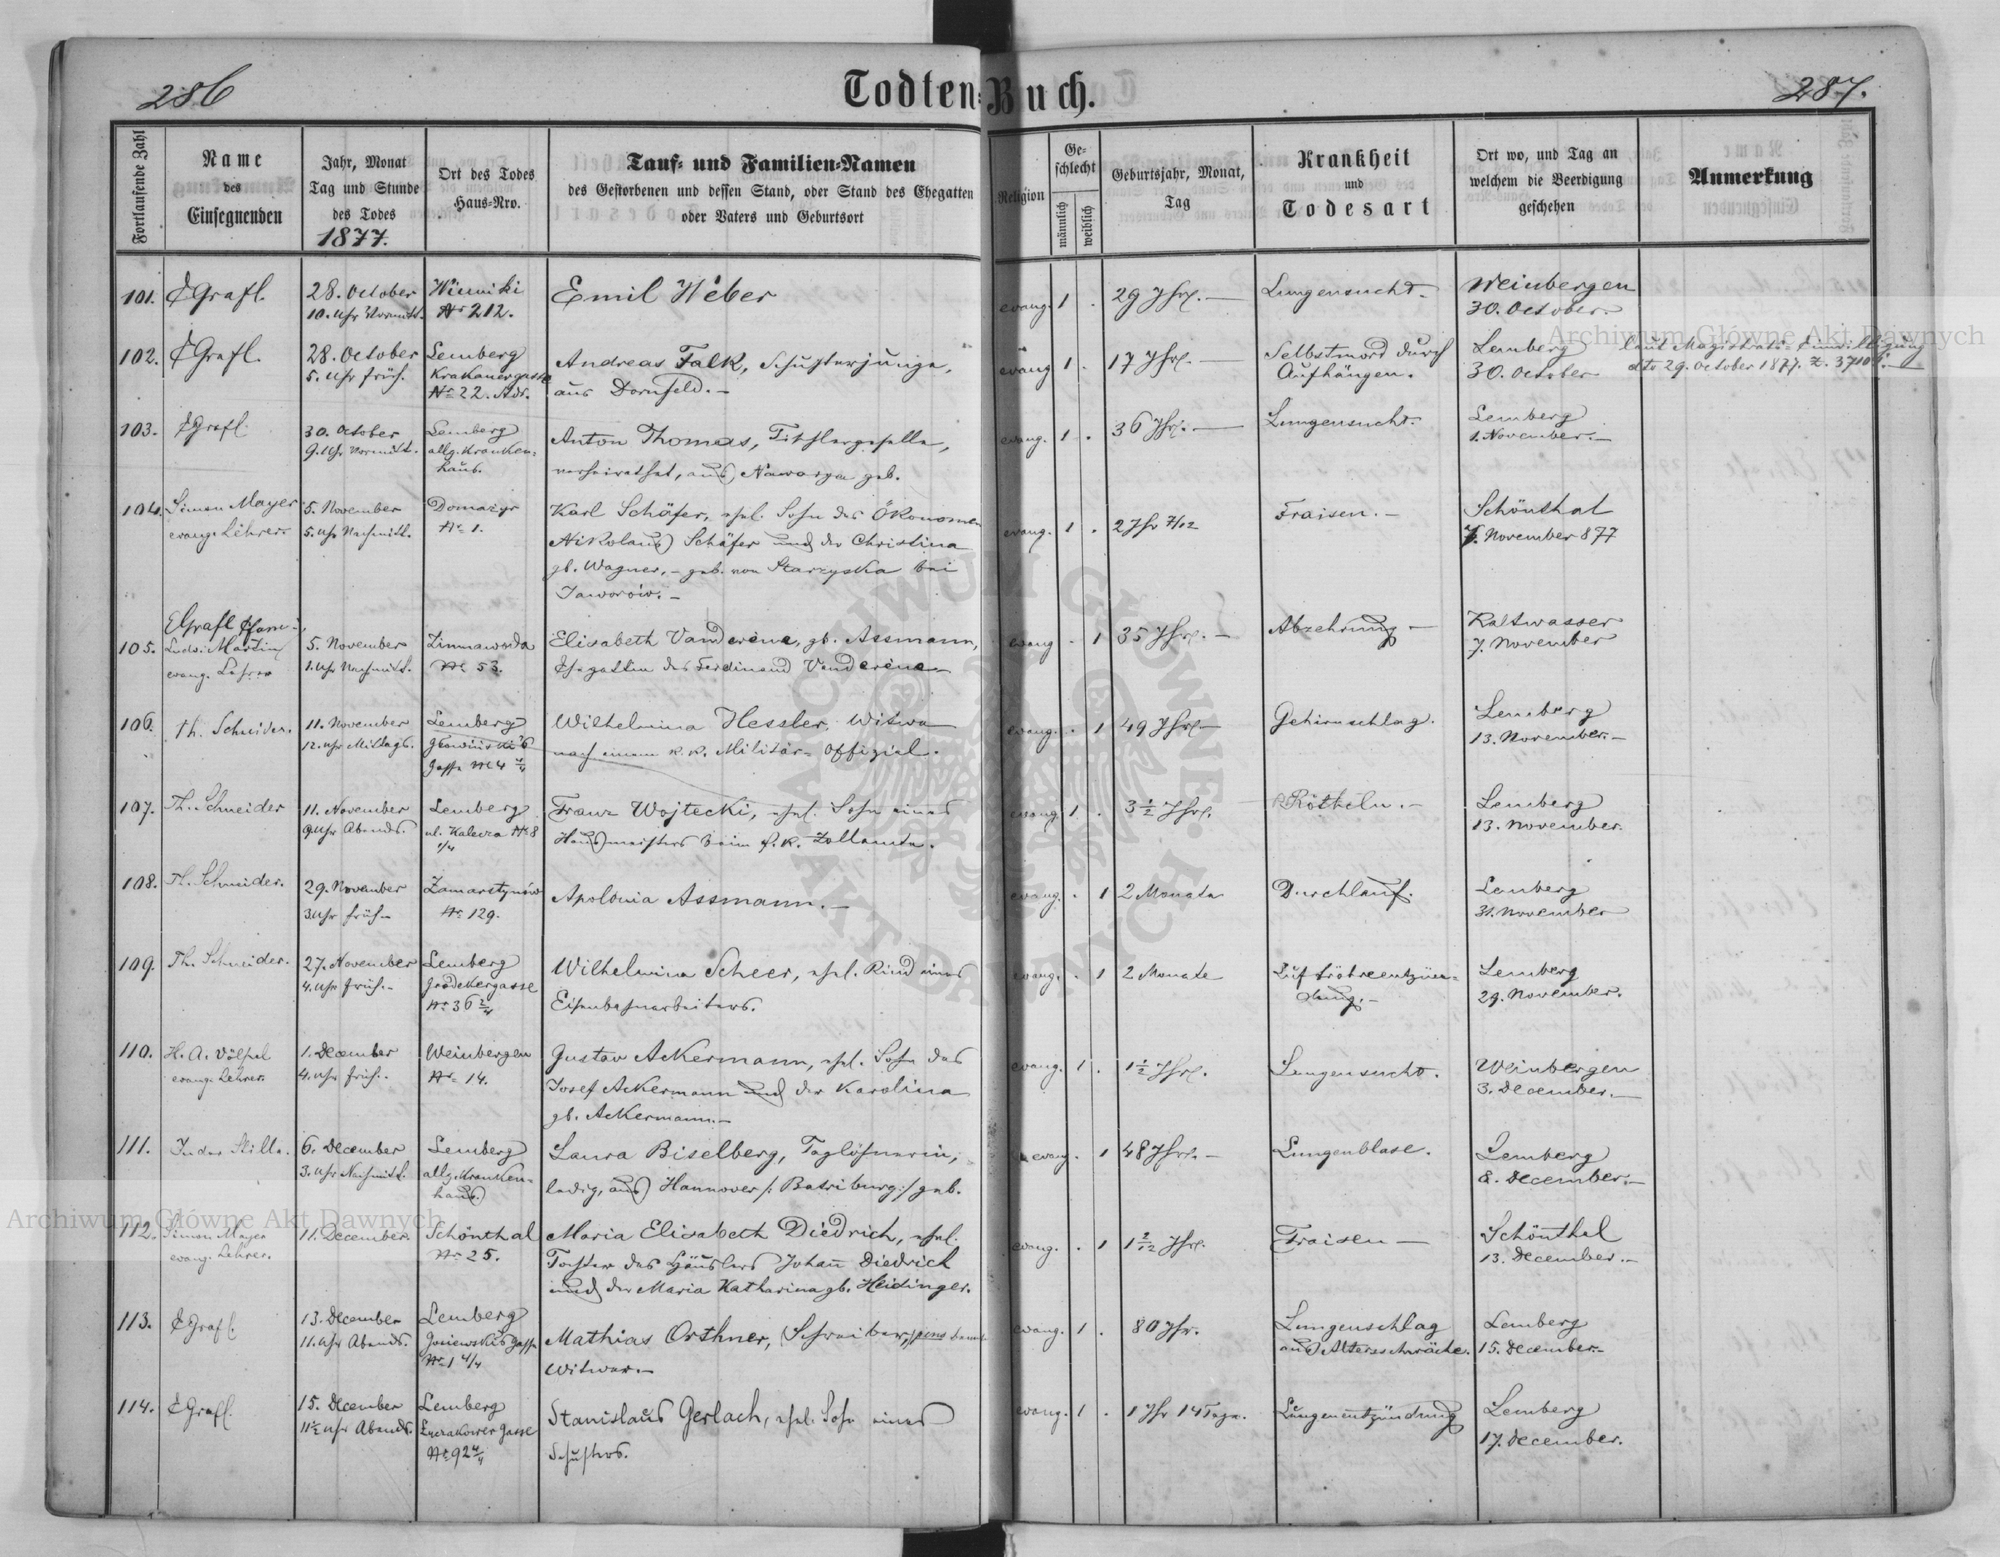 286
Todten-Buch.
287.
Fortlaufende Zahl
Name
des
Einsegnenden
Jahr, Monat
Tag und Stunde
des Todes
1877.
Ort des Todes
Haus-Nro.
Tauf- und Familien-Namen
des Gestorbenen und dessen Stand, oder Stand des Ehegatten
oder Vaters und Geburtsort
Religion
Ge-
schlecht
männlich
weiblich
Geburtsjahr, Monat,
Tag
Krankheit
und
Todesart
Ort wo, und Tag an
welchem die Beerdigung
geschehen
Anmerkung
101. Grafl. 28. October Winniki Emil Weber evang. 1 . 29 Jhr. Lungensucht. Weinbergen
10. Uhr Vormitt. No 212. 30. October.
102. Grafl. 28. October Lemberg Andreas Falk, Schusterjunge, evang 1 . 17 Jhr. Selbstmord durch Lemberg laut Magistrats-Einwilligung
5. Uhr früh. Krakauergasse aus Dornfeld. Aufhängen. 30. October dto 29. October 1877. Z. 37106.
No 22. Adr.
103. Grafl. 30. October Lemberg Anton Thomas, Tischlergeselle, evang. 1 . 36 Jhr. Lungensucht. Lemberg
9. Uhr Vormitt. allg. Kranken- verheirathet, aus geb. 1. November.
haus.
104. Simon Mayer 5. November Karl Schäfer, ehel. Sohn des Ökonomen evang. 1 . 2 Jhr 7/12 Fraisen. Schönthal
evang. Lehrer. 5. Uhr Nachmitt. No 1. Nikolaus Schäfer und der Christina 7. November 877
gb. Wagner, geb. von Starzyska bei
Jaworów.
105. Grafl Pfarr.
Ludw. Martin 5. November Zimnawoda Elisabeth Vanderéne, gb. Assmann, evang . 1 35 Jhr. Abzehrung Kaltwasser
evang. Lehrer 1. Uhr Nachmitt. No 53. Ehegattin des Ferdinand Vanderéne 7. November
106. Th. Schneider. 11. November Lemberg Wilhelmina Hessler, Witwe evang. . 1 49 Jhr Gehirnschlag. Lemberg
12. Uhr Mittags. nach einem k. k. Militär-Offizial. 13. November.
Gasse No 4
107. Th. Schneider 11. November Lemberg Franz Wojtecki, ehel. Sohn eines evang 1 . 3 1/2 Jhr. Rötheln. Lemberg
9 Uhr Abends. ul. Kalecza No 8 Hausmeisters beim k. k. Zollamte. 13. November.
1/4
108. Th. Schneider. 29. November Zamarstynów Apolonia Assmann. evang. . 1 2 Monate Durchlauf. Lemberg
3. Uhr früh No 129. 31. November
109. Th. Schneider. 27. November Lemberg Wilhelmina Scheer, ehel. Kind eines evang. . 1 2 Monate Luftröhreentzün- Lemberg
4. Uhr früh. Grodekergasse Eisenbahnarbeiters. dung. 29. November.
No 36 2/4
110. H. A. Völpel 1. December Weinbergen Gustav Ackermann, ehel. Sohn des evang. 1 . 1 1/2 Jhr. Lungensucht. Weinbergen
evang. Lehrer 4. Uhr früh. No 14. Josef Ackermann und der Karolina 3. December.
gb. Ackermann.
111. In der Stille. 6. December Lemberg Laura Biselberg, Taglöhnerin, evang. . 1 48 Jhr. Lungenblase. Lemberg
3. Uhr Nachmitt. allg. Kranken- ledig, aus Hannover /: :/ geb. 8. December.
haus.
112. Simon Mayer 11. December. Schönthal Maria Elisabeth Diedrich, ehel. evang. . 1 1 2/12 Jhr. Fraisen Schönthal
evang. Lehrer. No 25. Tochter des Häuslers Johan̄ Diedrich 13. December.
und der Maria Katharina gb. Heidinger.
113. Grafl. 13. December Lemberg Mathias Orthner, Schreiber, evang. 1 . 80 Jhr. Lungenschlag Lemberg
11. Uhr Abends. Gasse Witwer. aus Altersschwäche. 15. December.
No 1 4/4
114. Grafl. 15. December Lemberg Stanislaus Gerlach, ehel. Sohn eines evang. 1 . 1 Jhr 14 Tage. Lungenentzündung Lemberg
11 1/2 Uhr Abends. Łyczakower Gasse Schusters. 17. December.
No 92 4/4
Archiwum Główne Akt Dawnych
Archiwum Główne Akt Dawnych
ARCHIWUM GŁÓWNE AKT DAWNYCH